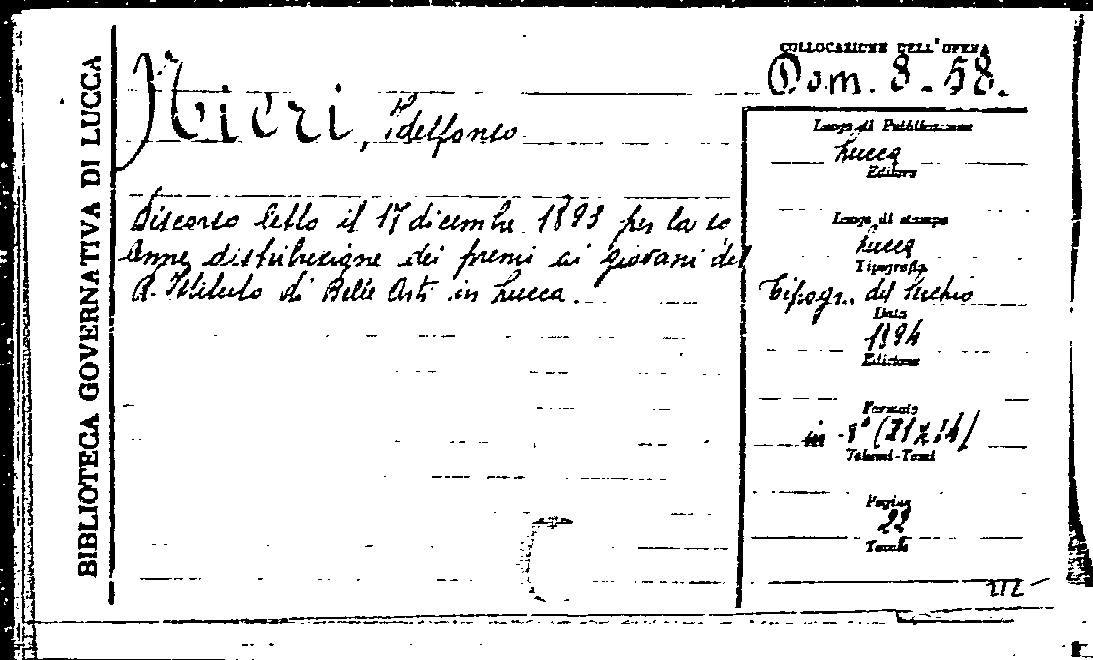 BIBLIOTECA GOVERNATIVA DI LUCCA
Nieri, Idelfonso
Discorso letto il 17 dicembre 1893 per la so
lenne distribuzione dei premi ai giovani del
R. Istituto di Belle Arti in Lucca.
COLLOCAZIONE DELL'OPERA
Dom. 8.58.
Luogo di Pubblicazione
Lucca
Editore
Luogo di stampa
Lucca
Tipografia
Tipogr. del Serchio
Data
1894
Edizione
Formato
in -8° (21x14)
Volumi-Tomi
Pagine
22
Tavole